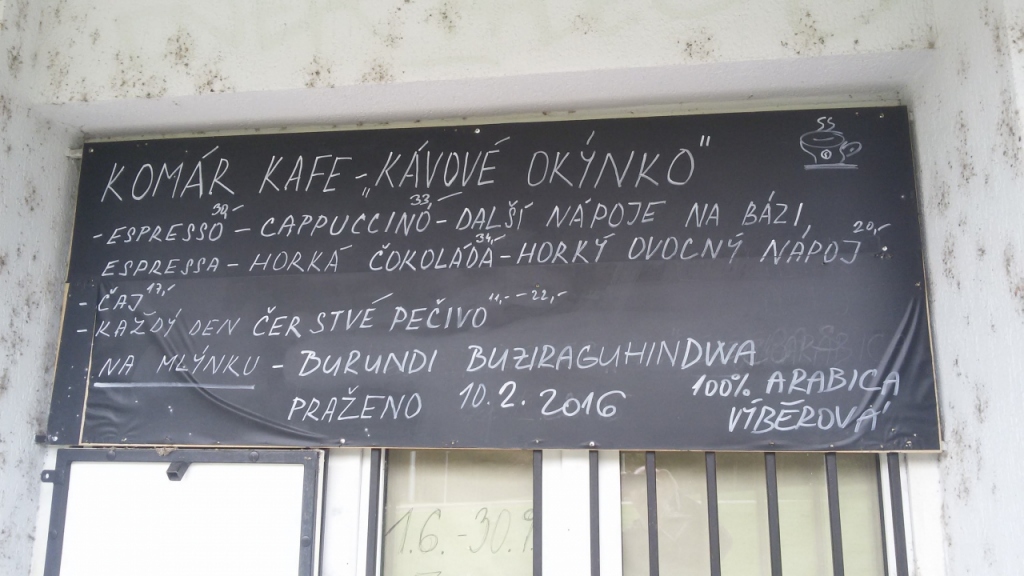 KOMÁR KAFE - „KÁVOVÉ OKÝNKO"
- ESPRESSO 30,- - CAPPUCCINO 33,- - DALŠÍ NÁPOJE NA BÁZI
ESPRESSA - HORKÁ ČOKOLÁDA 34,- - HORKÝ OVOCNÝ NÁPOJ 20,-
- ČAJ 17,-
- KAŽDÝ DEN ČERSTVÉ PEČIVO 11,- - 22,-
NA MLÝNKU - BURUNDI BUZIRAGUHINDWA
100% ARABICA
PRAŽENO 10.2.2016
VÍBĚROVÁ
1.6.-30.9.